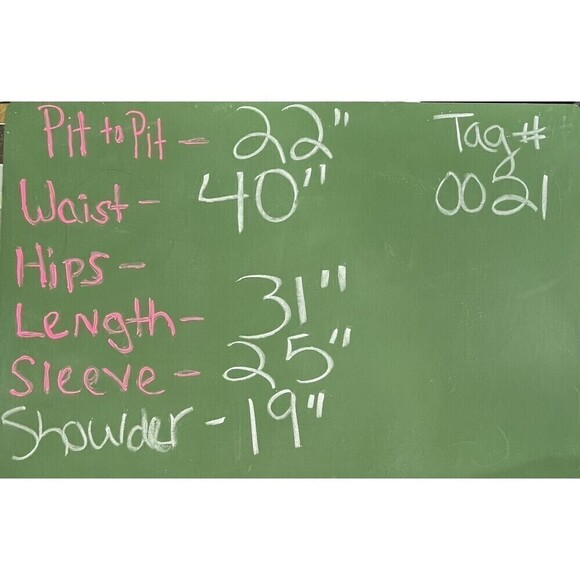 Pit to Pit - 22"
Tag #
Waist - 40"
0021
Hips -
Length - 31"
Sleeve - 25"
Showder - 19"